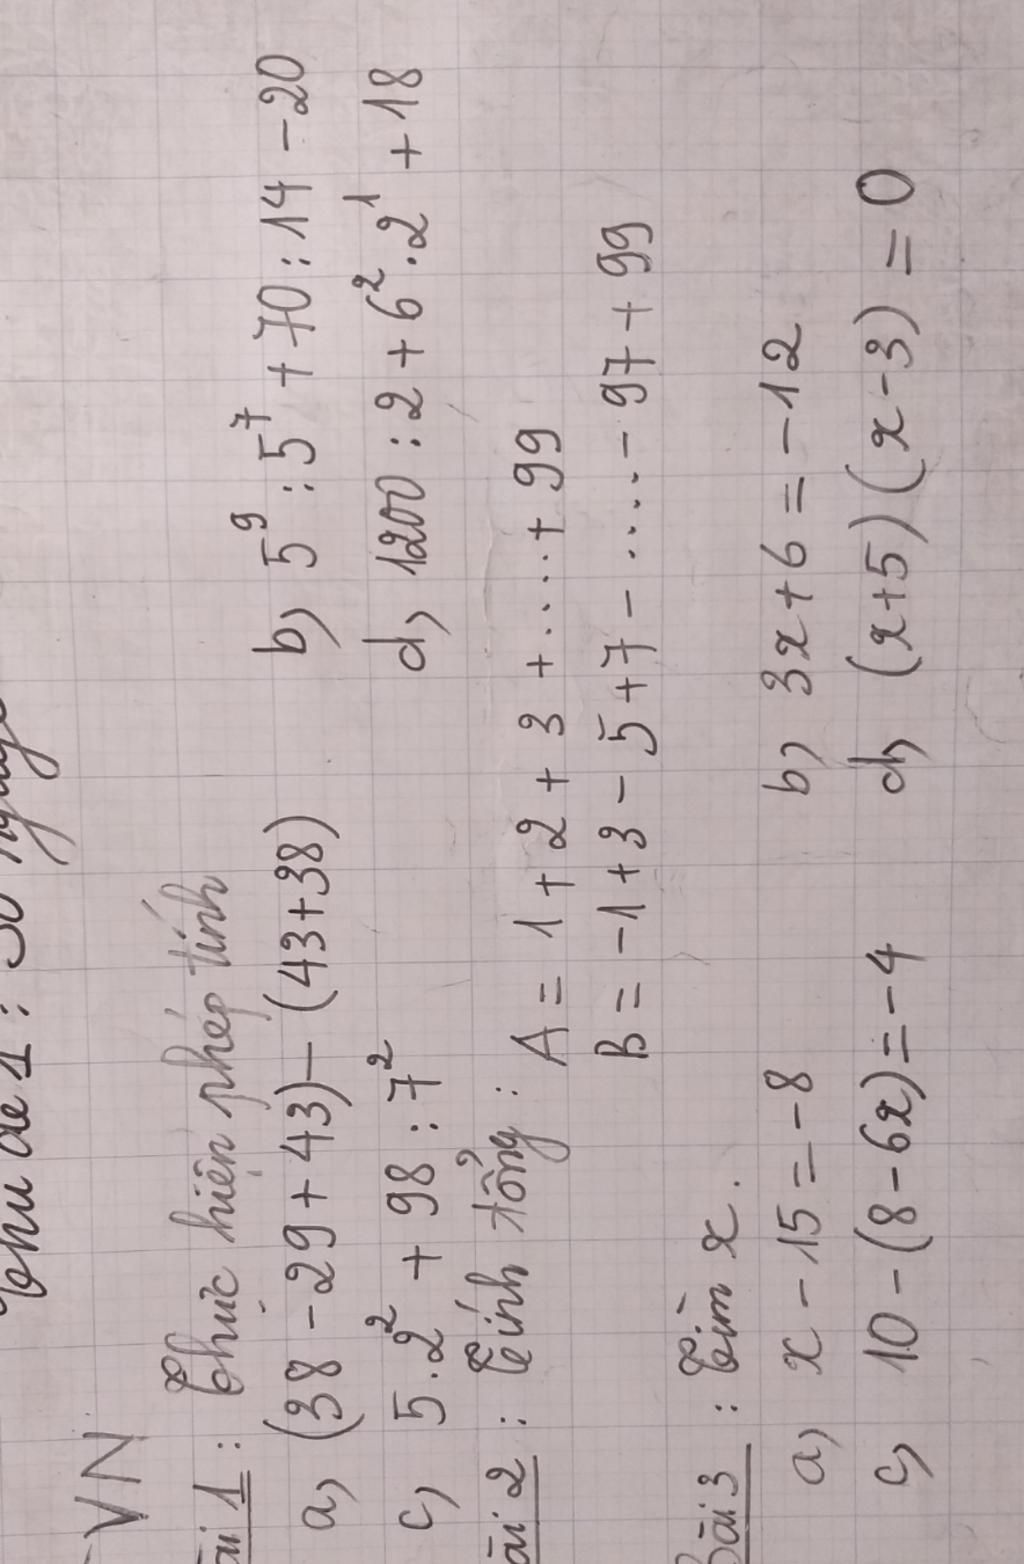 Chủ đề 1: Số nguyê
VN
ài 1: Thực hiện phép tính
a, (38 - 29 + 43) - (43+38) b, 5⁹ : 5⁷ + 70 : 14 - 20
c, 5.2² + 98 : 7² d, 1200 : 2 + 6².2¹ + 18
ài 2: Tính tổng: A = 1 + 2 + 3 + ..... + 99
B = -1 + 3 - 5 + 7 - ..... - 97 + 99
Bài 3: Tìm x.
a, x - 15 = -8 b, 3x + 6 = -12
c, 10 - (8 - 6x) = -4 d, (x+5)(x-3) = 0